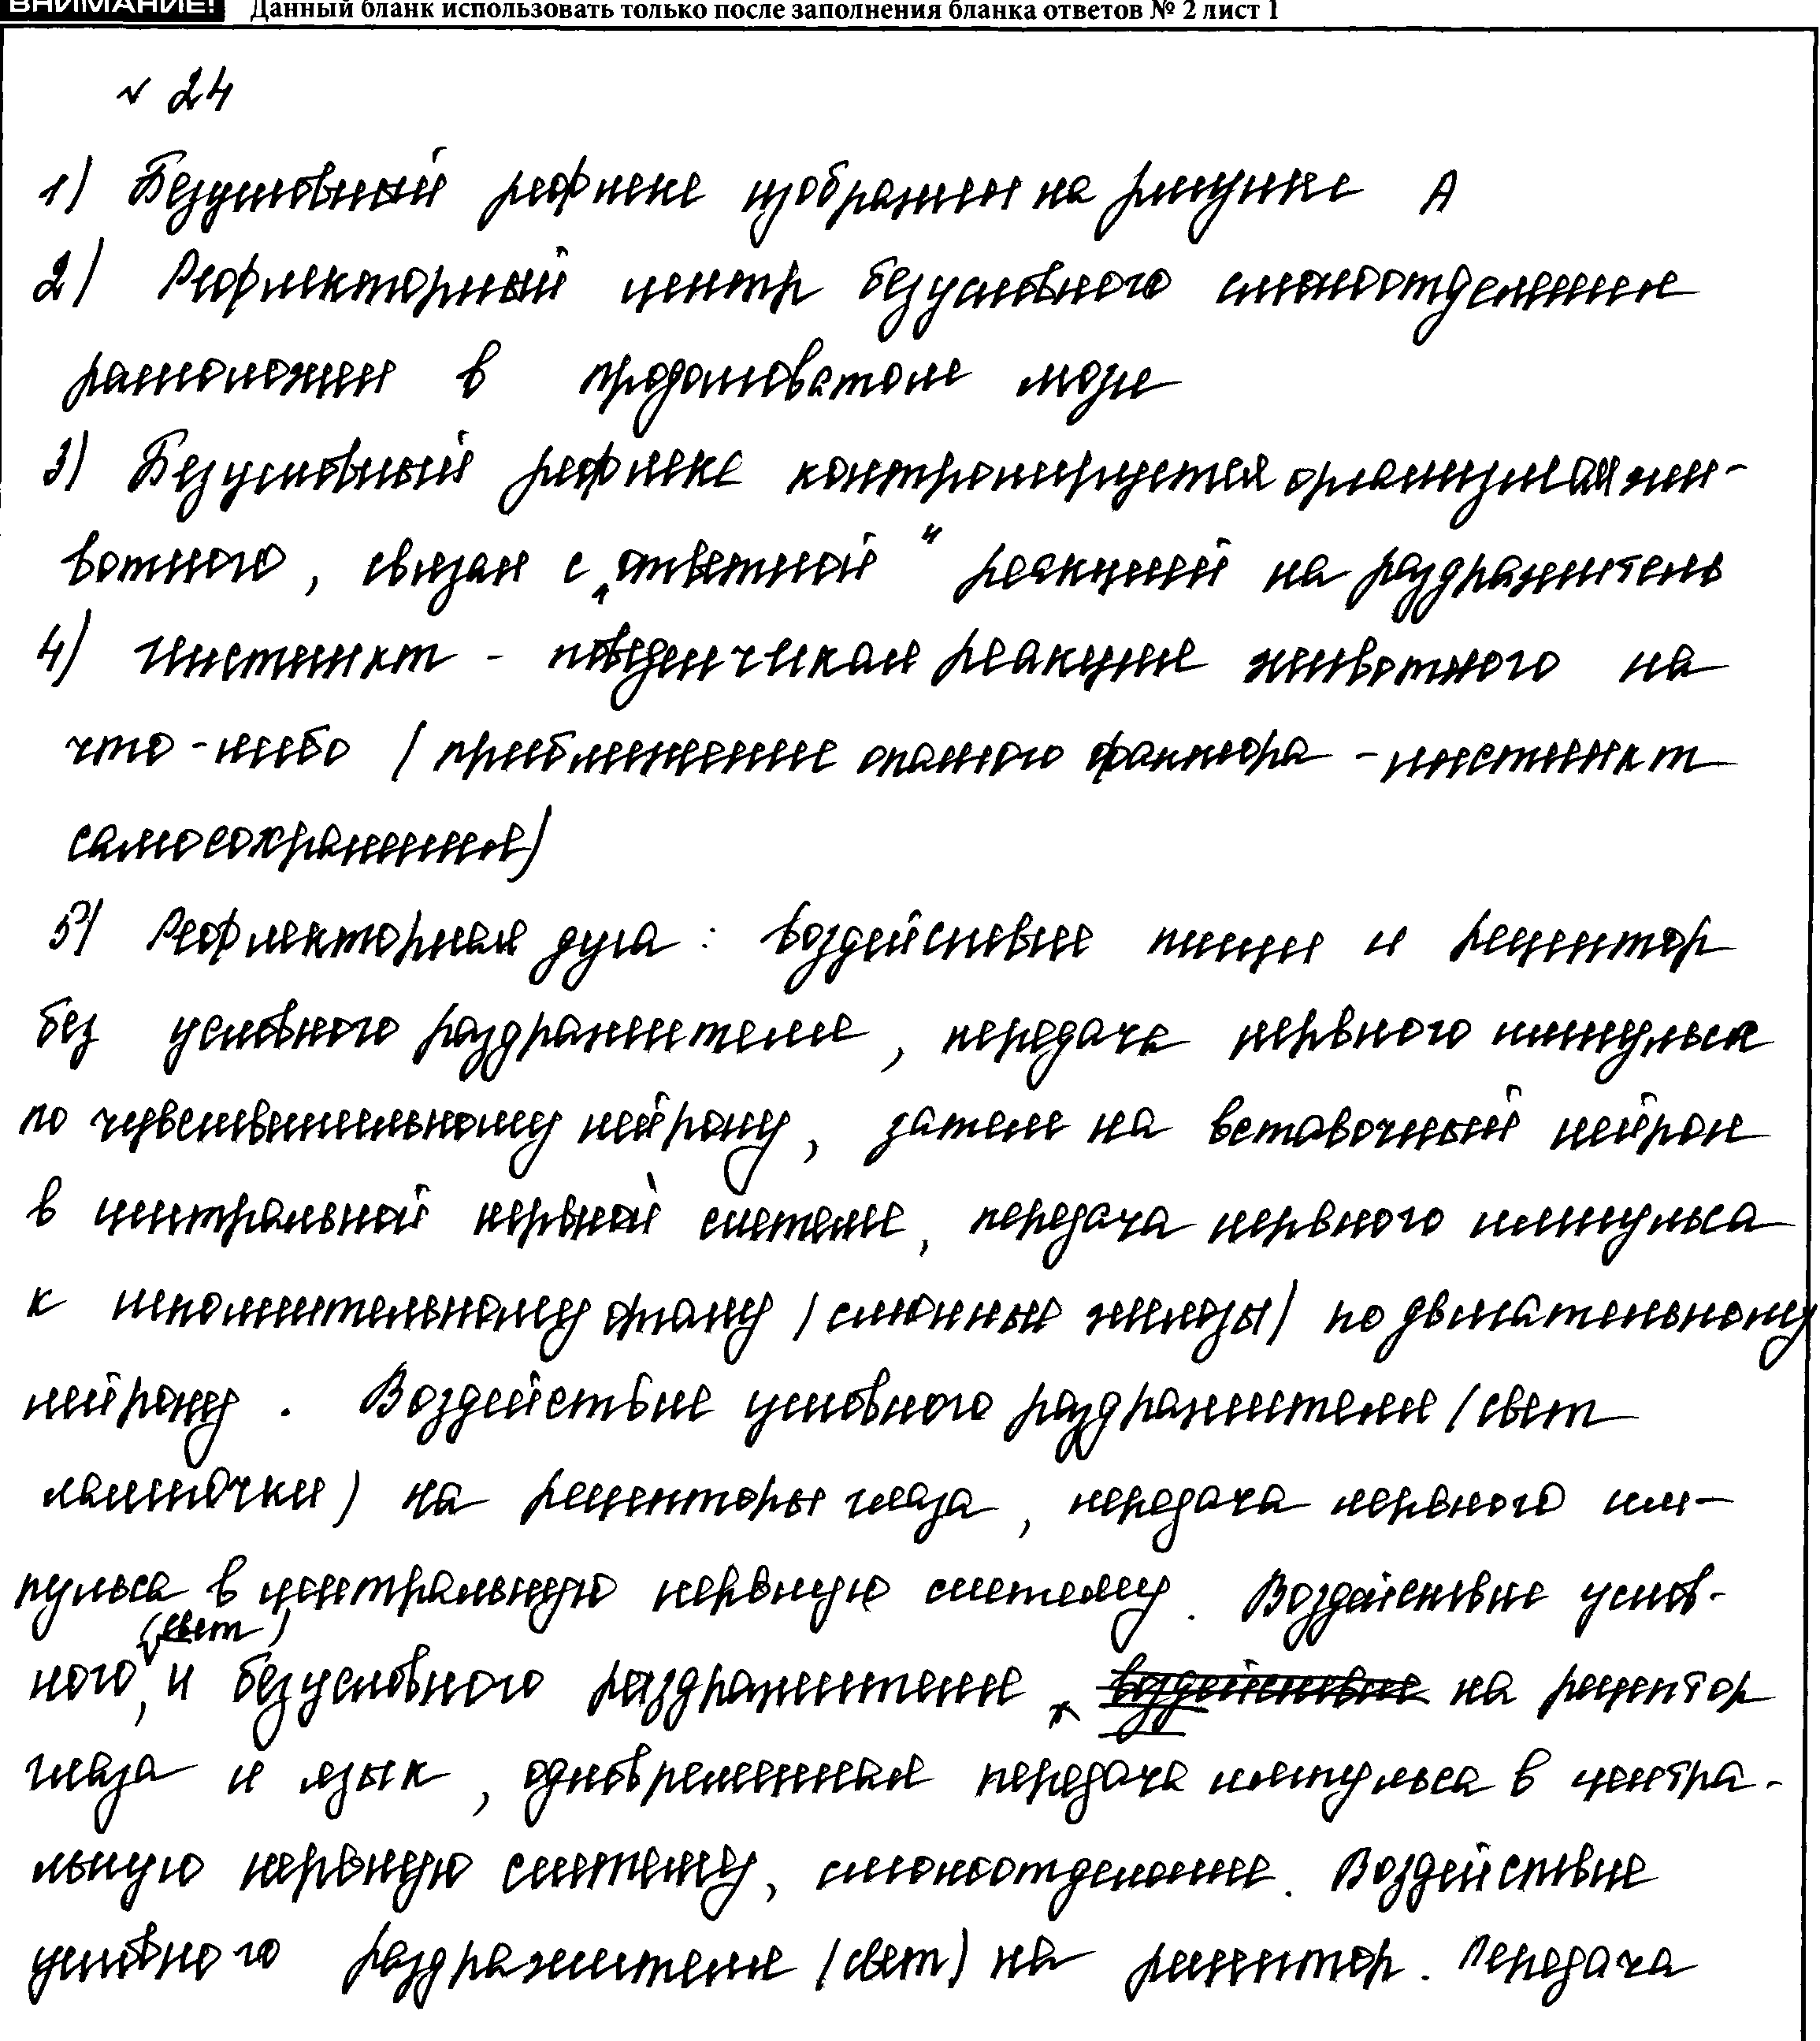 ВНИМАНИЕ! Данный бланк использовать только после заполнения бланка ответов № 2 лист 1
№ 24
1) Безусловный рефлекс изображен на рисунке А
2) Рефлекторный центр безусловного слюноотделения
расположен в продолговатом мозге
3) Безусловный рефлекс контролируется организмам жи-
вотного, связан с „ответной“ реакцией на раздражитель
4) Инстинкт - поведенческая реакция животного на
что-либо (приближение опасного фактора - инстинкт
самосохранения)
5) Рефлекторная дуга: воздействие пищи и рецептор
без условного раздражителя, передача нервного импульса
по чувствительному нейрону, затем на вставочный нейрон
в центральной нервной системе, передача нервного импульса
к исполнительному органу (слюнные железы) по двигательному
нейрону. Воздействие условного раздражителя (свет
лампочки) на рецепторы глаза, передача нервного им-
пульса в центральную нервную систему. Воздействие услов-
(свет)
ного, и безусловного раздражителя воздействие на рецептор
глаза и язык, одновременная передача импульса в центра-
льную нервную систему, слюноотделение. Воздействие
условного раздражителя (свет) на рецептор. Передача